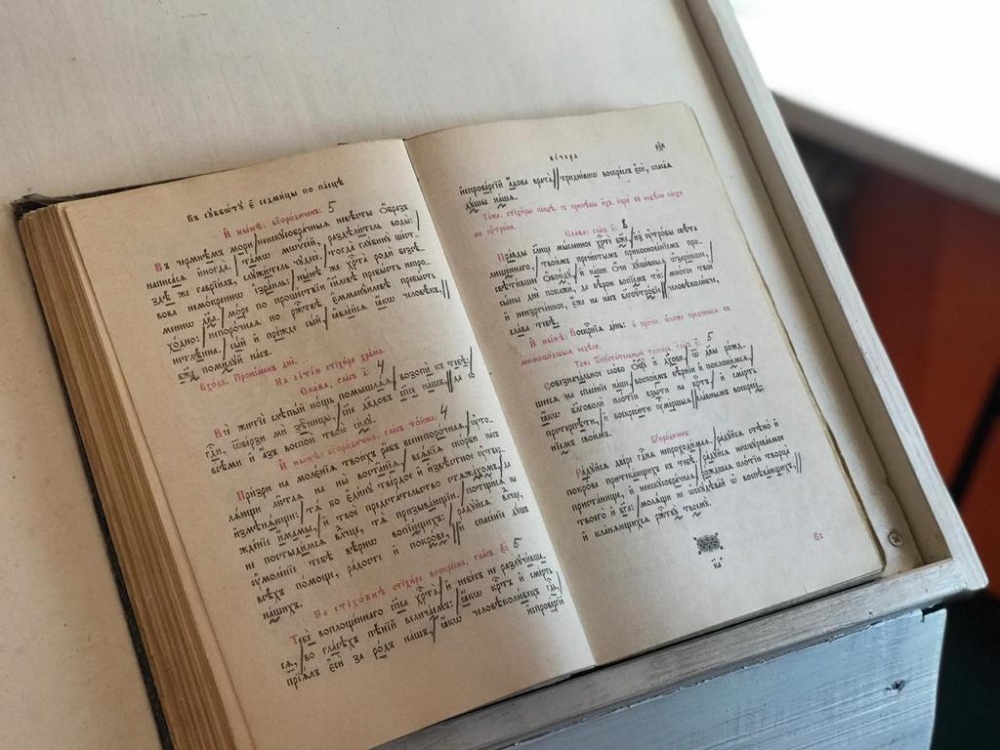 Въ сꙋббѡ́тꙋ є҃ седми́цы по па́сцѣ
И҆ ны́нѣ, бг҃оро́диченъ: 5
Въ чермнѣ́мъ мо́ри, неискꙋсобра́чныѧ невѣ́сты ѻ҆́бразъ
написа́сѧ и҆ногда̀: та́мѡ мѡѷсе́й, раздѣли́тель воды̀:
здѣ́ же гаврїи́лъ, слꙋжи́тель чꙋдесѐ. тогда̀ глꙋбинꙋ̀ ше́ст-
вова немо́креннѡ і҆и҃ль: ны́нѣ же хрⷭ҇та̀ родѝ безсѣ́-
меннѡ дв҃а. мо́ре по проше́ствїи і҆и҃левѣ пребы́сть непро-
хо́дно: непоро́чнаѧ по ржⷭ҇твѣ̀ є҆мманꙋи́левѣ пребы́сть
нетлѣ́нна, сы́й и҆ пре́жде сы́й, ꙗ҆вле́йсѧ ꙗ҆́кѡ человѣ́къ,
бж҃е поми́лꙋй на́съ.
Вхо́дъ. Проки́менъ днѐ.
На лїті́и стїхи́ра хра́ма.
Сла́ва, гла́съ д҃: 4
Всѐ житїѐ слѣпы́й но́щь помышлѧ́ѧ, возопѝ къ тебѣ̀:
гдⷭ҇и, ѿве́рзи мѝ зѣ̑ницы, сн҃е дв҃довъ сп҃се на́шъ, да со
всѣ́ми и҆ а҆́зъ воспою̀ твою̀ си́лꙋ.
И҆ ны́нѣ, бг҃оро́диченъ, гла́съ то́йже: 4
При́зри на молє́нїѧ твои́хъ ра̑бъ всенепоро́чнаѧ, ᲂу҆тᲂ-
лѧ́ющи лю̑таѧ на ны̀ воста̑нїѧ, всѧ́кїѧ ско́рби на́съ
и҆змѣнѧ́ющи: тѧ́ бо є҆ди́нꙋ тве́рдое и҆ и҆звѣ́стное ᲂу҆твер-
жде́нїе и҆́мамы, и҆ твоѐ предста́тельство стѧжа́хомъ, да
не постыди́мсѧ влⷣчце, тѧ̀ призыва́ющїи, потщи́сѧ на
ᲂу҆моле́нїе тебѣ̀ вѣ́рнѡ вопїю́щихъ: ра́дꙋйсѧ влⷣчце,
всѣ́хъ по́моще, ра́досте и҆ покро́ве, и҆ спасе́нїе дꙋ́шъ
на́шихъ.
На стїхо́внѣ стїхи́ра воскрⷭ҇на, гла́съ є҃: 5
Тебѐ воплоще́ннаго сп҃са хрⷭ҇та̀, и҆ нб҃съ не разлꙋчи́вша-
сѧ, во гла́сѣхъ пѣ́нїй велича́емъ: ꙗ҆́кѡ крⷭ҇тъ и҆ сме́рть
прїѧ́лъ є҆сѝ за ро́дъ на́шъ, ꙗ҆́кѡ чл҃вѣколю́бецъ гдⷭ҇ь,
испрове́ргїй
ве́чера
и҆спрове́ргїй а҆́дова врата̀, тридне́внѡ воскре́слъ є҆сѝ, спаса́ѧ
дꙋ́шы на́шѧ.
Та́же, стїхи̑ры па́сцѣ, съ припѣ́вы и҆́хъ.
на ᲂу҆́трени.
Сла́ва: гла́съ и҃: 8
Пра́вды слн҃це мы́сленное хрⷭ҇тѐ бж҃е, и҆з̾ ᲂу҆тро́бы свѣ́та
лише́ннаго, твои́мъ пречⷭ҇тымъ прикоснове́нїемъ про-
свѣти́вый ѻ҆бою́дꙋ, и҆ на́ши ѻ҆́чи дꙋшє́вныѧ ѡ҆зари́вый,
сы́ны днѐ покажѝ, да вѣ́рою вопїе́мъ тѝ: мно́гое твоѐ
и҆ неизрече́нное, є҆́же на на́съ бл҃гоꙋтро́бїе, человѣколю́бче,
сла́ва тебѣ̀.
И҆ ны́нѣ: Воскрⷭ҇нїѧ де́нь:
Та́же гла́съ є҃: 5
Собезнача́льное сло́во ѻ҆ц҃ꙋ̀ и҆ дх҃ови, ѿ дв҃ы ро́жд-
шеесѧ на спасе́нїе на́ше, воспои́мъ вѣ́рнїи и҆ поклони́мсѧ,
ꙗ҆́кѡ бл҃говолѝ пло́тїю взы́ти на крⷭ҇тъ, и҆ сме́рть
претерпѣ́ти, и҆ воскреси́ти ᲂу҆ме́ршыѧ сла́внымъ воскрⷭ҇-
нїемъ свои́мъ.
Бг҃оро́диченъ:
Ра́дꙋйсѧ две́ре гдⷭ҇нѧ непроходи́маѧ, ра́дꙋйсѧ стѣно̀ и҆
покро́ве притека́ющихъ къ тебѣ̀, ра́дꙋйсѧ неѡбꙋрева́емое
приста́нище, и҆ неискꙋсобра́чнаѧ, ро́ждшаѧ пло́тїю творца̀
твоего̀ и҆ бг҃а: молѧ́щи не ѡ҆скꙋдѣва́й ѡ҆ воспѣва́ющихъ,
и҆ кла́нѧющихсѧ ржⷭ҇твꙋ̀ твоемꙋ̀.
к҃а